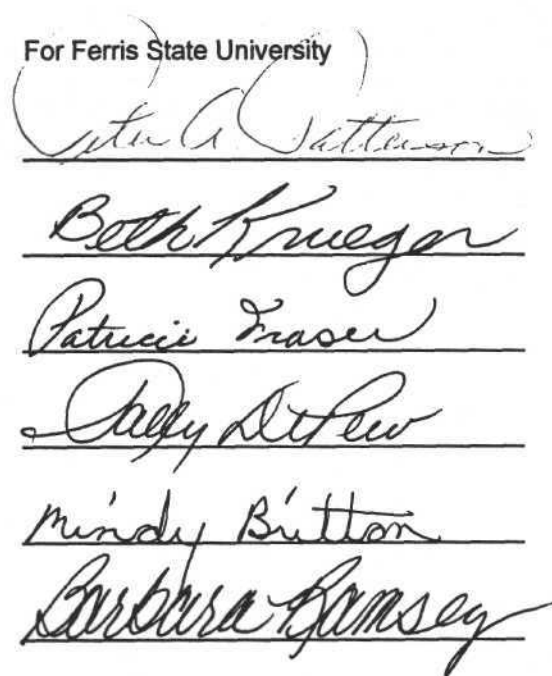 For Ferris State University
Peter A. Patterson
Beth Krueger
Patricia Fraser
Sally DePew
Mindy Britton
Barbara Ramsey